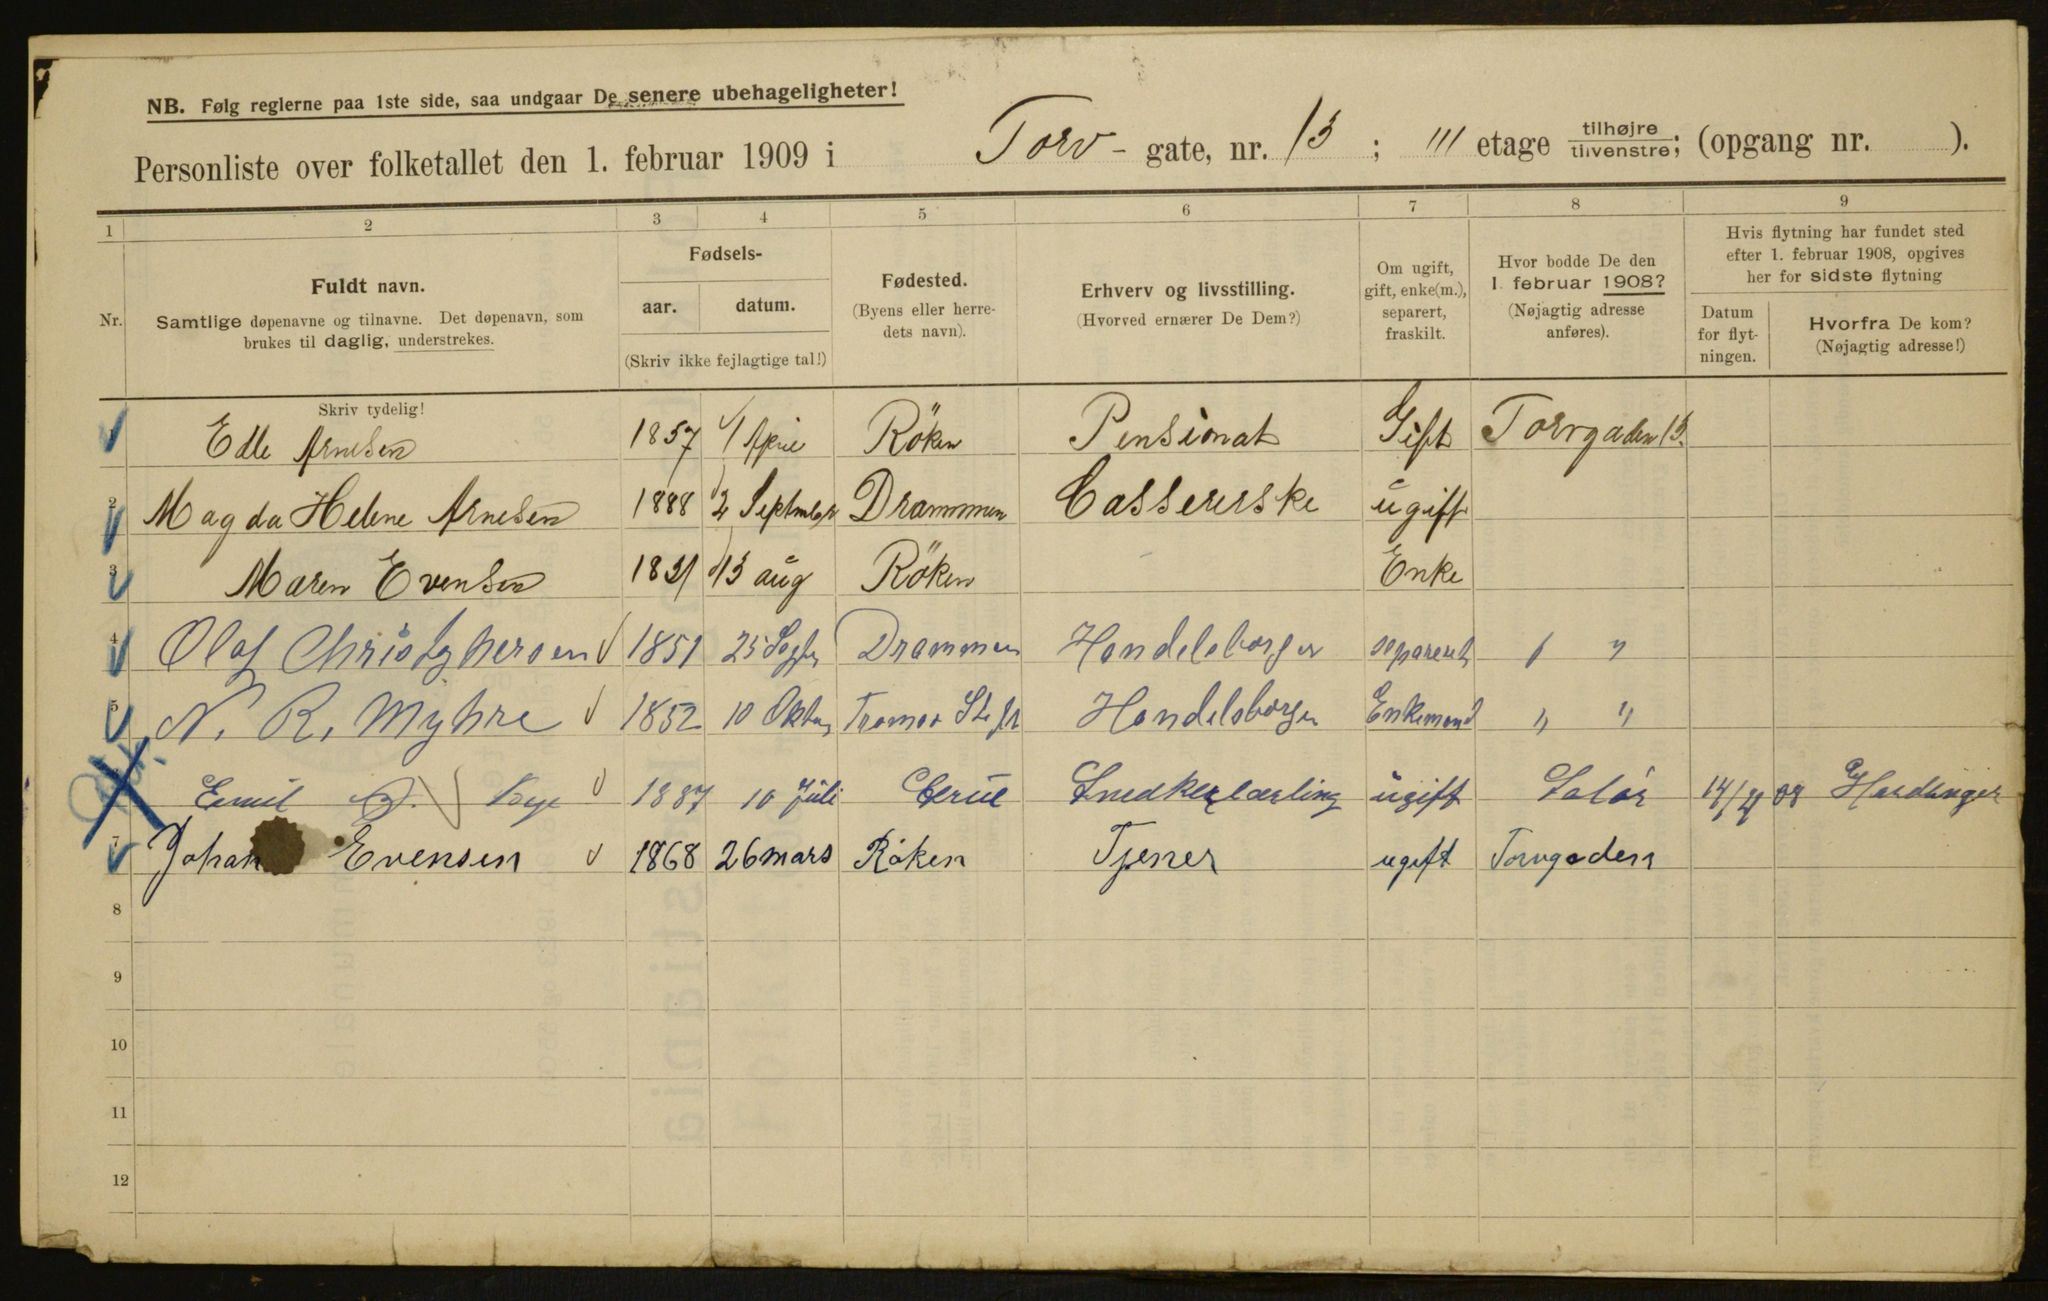 NB. Følg reglerne paa 1ste side, saa undgaar De senere ubehageligheter!
Personliste over folketallet den 1. februar 1909 i Torv- gate, nr. 13; III etage tilhøjre tilvenstre; (opgang nr. ).
1 2 3 4 5 6 7 8 9
Nr.
Fuldt navn.
Samtlige døpenavne og tilnavne. Det døpenavn, som
brukes til daglig, understrekes.
Fødsels-
aar. datum.
(Skriv ikke fejlagtige tal!)
Fødested.
(Byens eller herre-
dets navn).
Erhverv og livsstilling.
(Hvorved ernærer De Dem?)
Om ugift,
gift, enke(m.),
separert,
fraskilt.
Hvor bodde De den
1. februar 1908?
(Nøjagtig adresse
anføres).
Hvis flytning har fundet sted
efter 1. februar 1908, opgives
her for sidste flytning
Datum
for flyt-
ningen.
Hvorfra De kom?
(Nøjagtig adresse!)
Skriv tydelig!
Edle Arnesen 1857 April Röken Pensionat Gift Torvgaden 13.
2 Magda Helene Arnesen 1888 2 September Drammen Casserske ugift
3 Maren Evensen 1831 13 aug Röken Enke
4 Olaf Christophersen 1851 25 Septbr Drammen Handelsborger separert " "
5 N. R. Myhre 1852 10 Oktbr Tromsø Stift Handelsborger Enkemand " "
Emil 1887 10 Juli Snedkerlærling ugift Solør 14/4 08 Hardanger
7 Johan Evensen 1868 26 mars Røken Tjener ugift Torvgaden
8
9
10
11
12